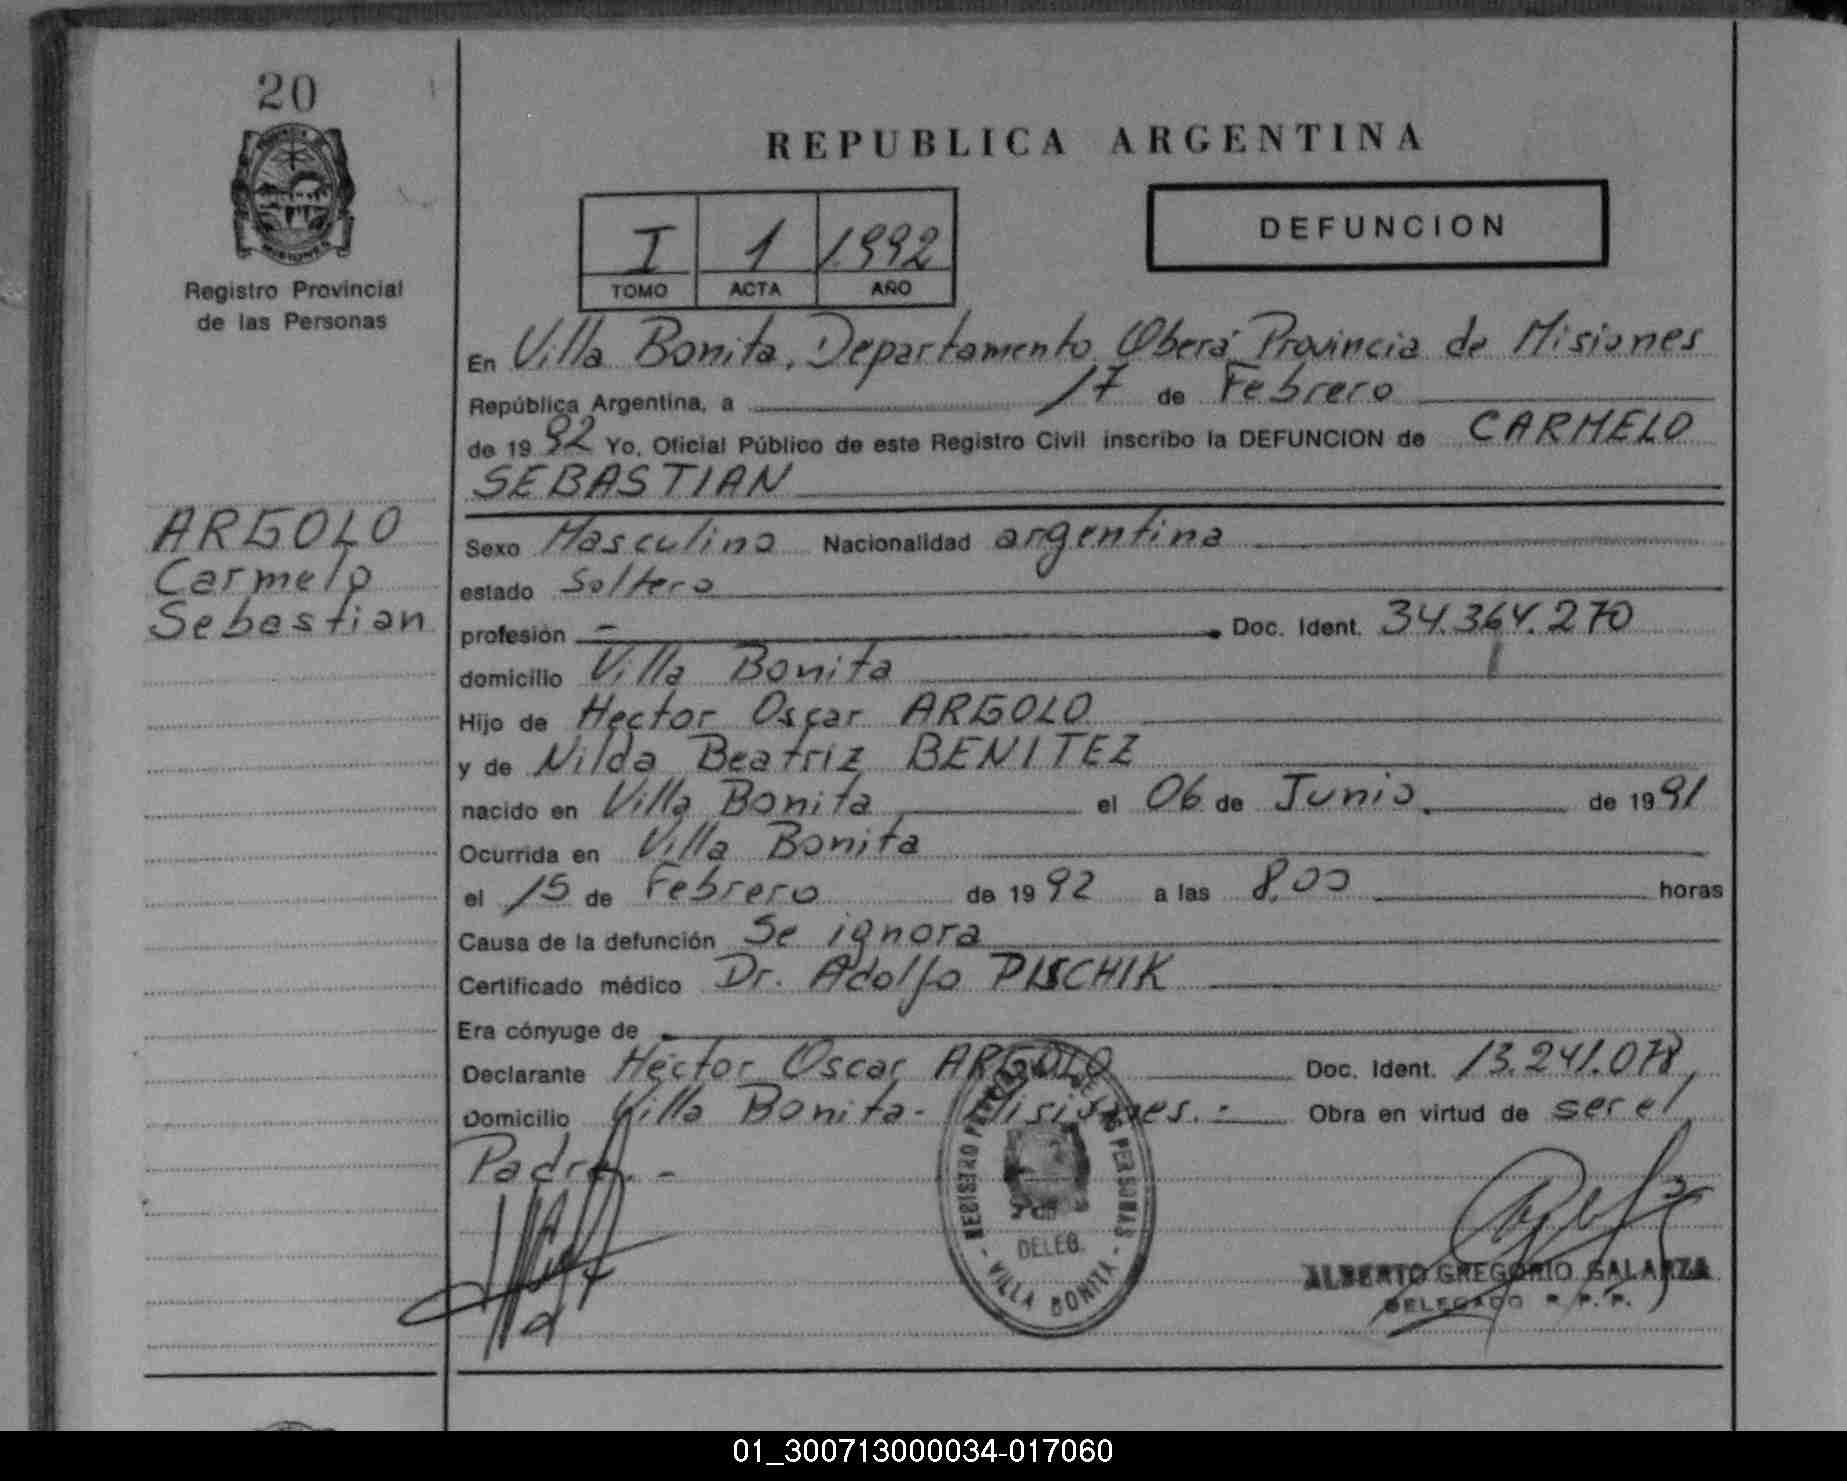 20
Registro Provincial
de las Personas
ARGOLO
Carmelo
Sebastian
REPUBLICA ARGENTINA
I 1 1.992
TOMO ACTA AÑO
DEFUNCION
En Villa Bonita, Departamento Oberá Provincia de Misiones
República Argentina, a 17 de Febrero
de 1992 Yo, Oficial Público de este Registro Civil inscribo la DEFUNCION de CARMELO
SEBASTIAN
Sexo Masculino Nacionalidad argentina
estado Soltero
profesión - Doc. Ident. 34.364.270
domicilio Villa Bonita
Hijo de Hector Oscar ARGOLO
y de Nilda Beatriz BENITEZ
nacido en Villa Bonita el 06 de Junio de 1991
Ocurrida en Villa Bonita
el 15 de Febrero de 1992 a las 8,00 horas
Causa de la defunción Se ignora
Certificado médico Dr. Adolfo PISCHIK
Era cónyuge de
Declarante Héctor Oscar ARGOLO Doc. Ident. 13.241.078,
Domicilio Villa Bonita - Misiones. - Obra en virtud de ser el
Padre. -
REGISTRO DE LAS PERSONAS
DELEG.
- VILLA BONITA -
ALBERTO GREGORIO GALARZA
DELEGADO R. P. P.
01_300713000034-017060